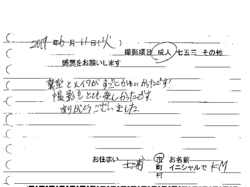 2019年6月11日(火)
撮影項目 成人 七五三 その他
感想をお願いします
髪型とメイクがすごくかわいかったです!
撮影もとても楽しかったです。
ありがとうございました。
お住まい 市町村 お名前
イニシャルで K M